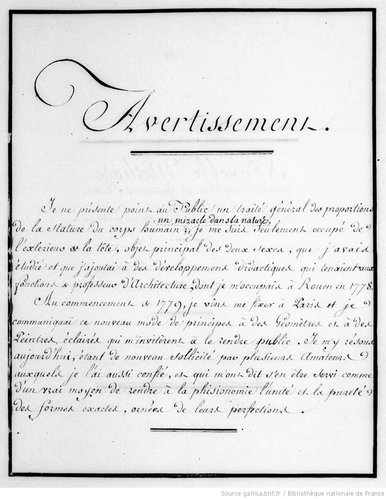 Avertissement.
Je ne présente point au Public un traité général des proportions
un miracle dans la nature,
de la stature du corps humain, je me suis seulement occupé de
l'extérieur de la tête, objet principal des deux sexes, que j'avais
étudié et que j'ajoutai à des développemens Didactiques qui tenaient aux
fonctions de professeur d'Architecture dont je m'occupais à Rouen en 1778.
Au commencement de 1779, je vins me fixer à Paris et je
communiquai ce nouveau mode de principes à des Géomètres et à des
Peintres éclairés qui m'invitèrent à le rendre public. Je m'y résous
aujourd'hui, étant de nouveau sollicité par plusieurs Amateurs
auxquels je l'ai aussi confié, et qui m'ont dit s'en être servi comme
d'un vrai moyen de rendre à la phisionomie l'unité et la pureté
des formes exactes, ornées de leurs perfections.
Source gallica.bnf.fr / Bibliothèque nationale de France